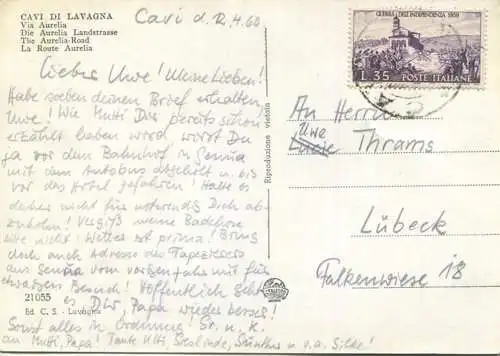 CAVI DI LAVAGNA
Via Aurelia
Die Aurelia Landstrasse
The Aurelia-Road
La Route Aurelia
Cavi d. 12.4.60
Lieber Uwe! Meine Lieben!
Habe soeben deinen Brief erhalten,
Uwe! Wie Mutti Dir bereits schon
erzählt haben wird, wirst Du
ja vor dem Bahnhof in Genua
mit dem Autobus abgeholt u. bis
vor das Hotel gefahren! Halte es
daher nicht für notwendig Dich ab-
zuholen! Vergiß meine Badehose
bitte nicht! Wetter ist prima! Bring
doch auch Adresse des Tapezierers
aus Genua vom vorigen Jahr mit für
etwaigen Besuch! Hoffentlich geht
es Dir, Papa wieder besser!
Sonst alles in Ordnung! Gr. u. K.
an Mutti, Papa! Tante Utti, Günther u. v. a. Silke!
21055
Ed. C. S. - Lavagna
Riproduzione vietata
GUERRA DELL'INDIPENDENZA 1859
L. 35 POSTE ITALIANE
An Herrn
Uwe Thrams
Lübeck
Falkenwiese 18